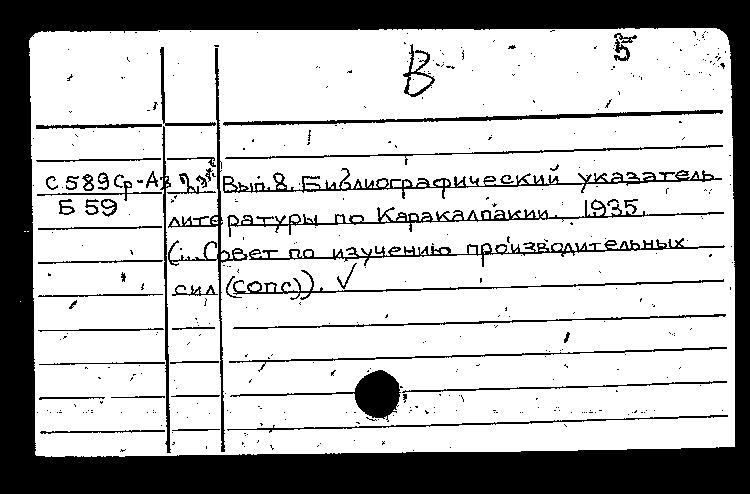 5
В
С 589 Ср-Аз Вып. 8. Библиографический указатель
Б 59 литературы по Каракалпакии. 1935.
(... Совет по изучению производительных
сил (СОПС)). ✓